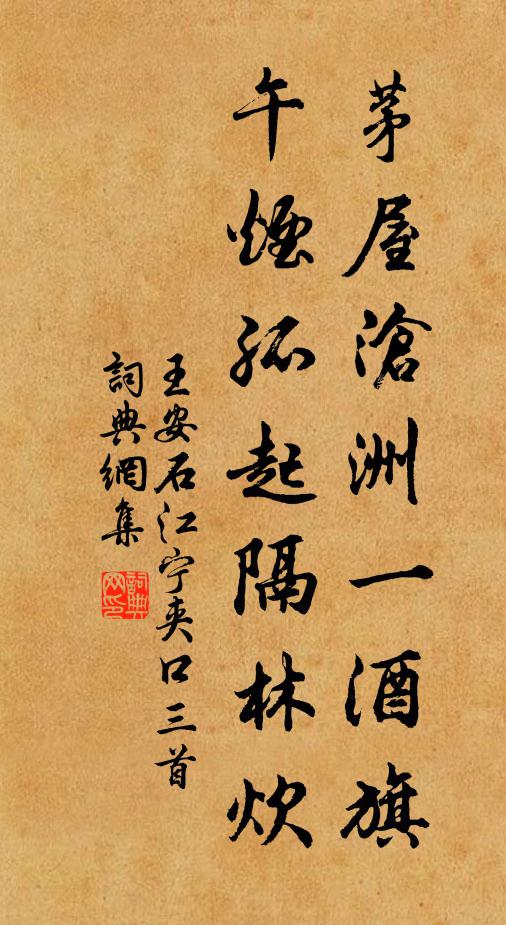 茅屋滄洲一酒旗
午煙孤起隔林炊
王安石江宁夹口三首
詞典網集
詞典网印